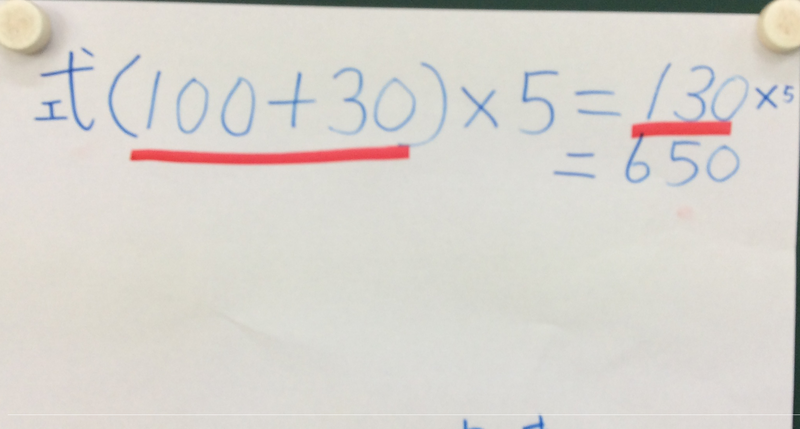 式(100+30)×5=130×5
=650